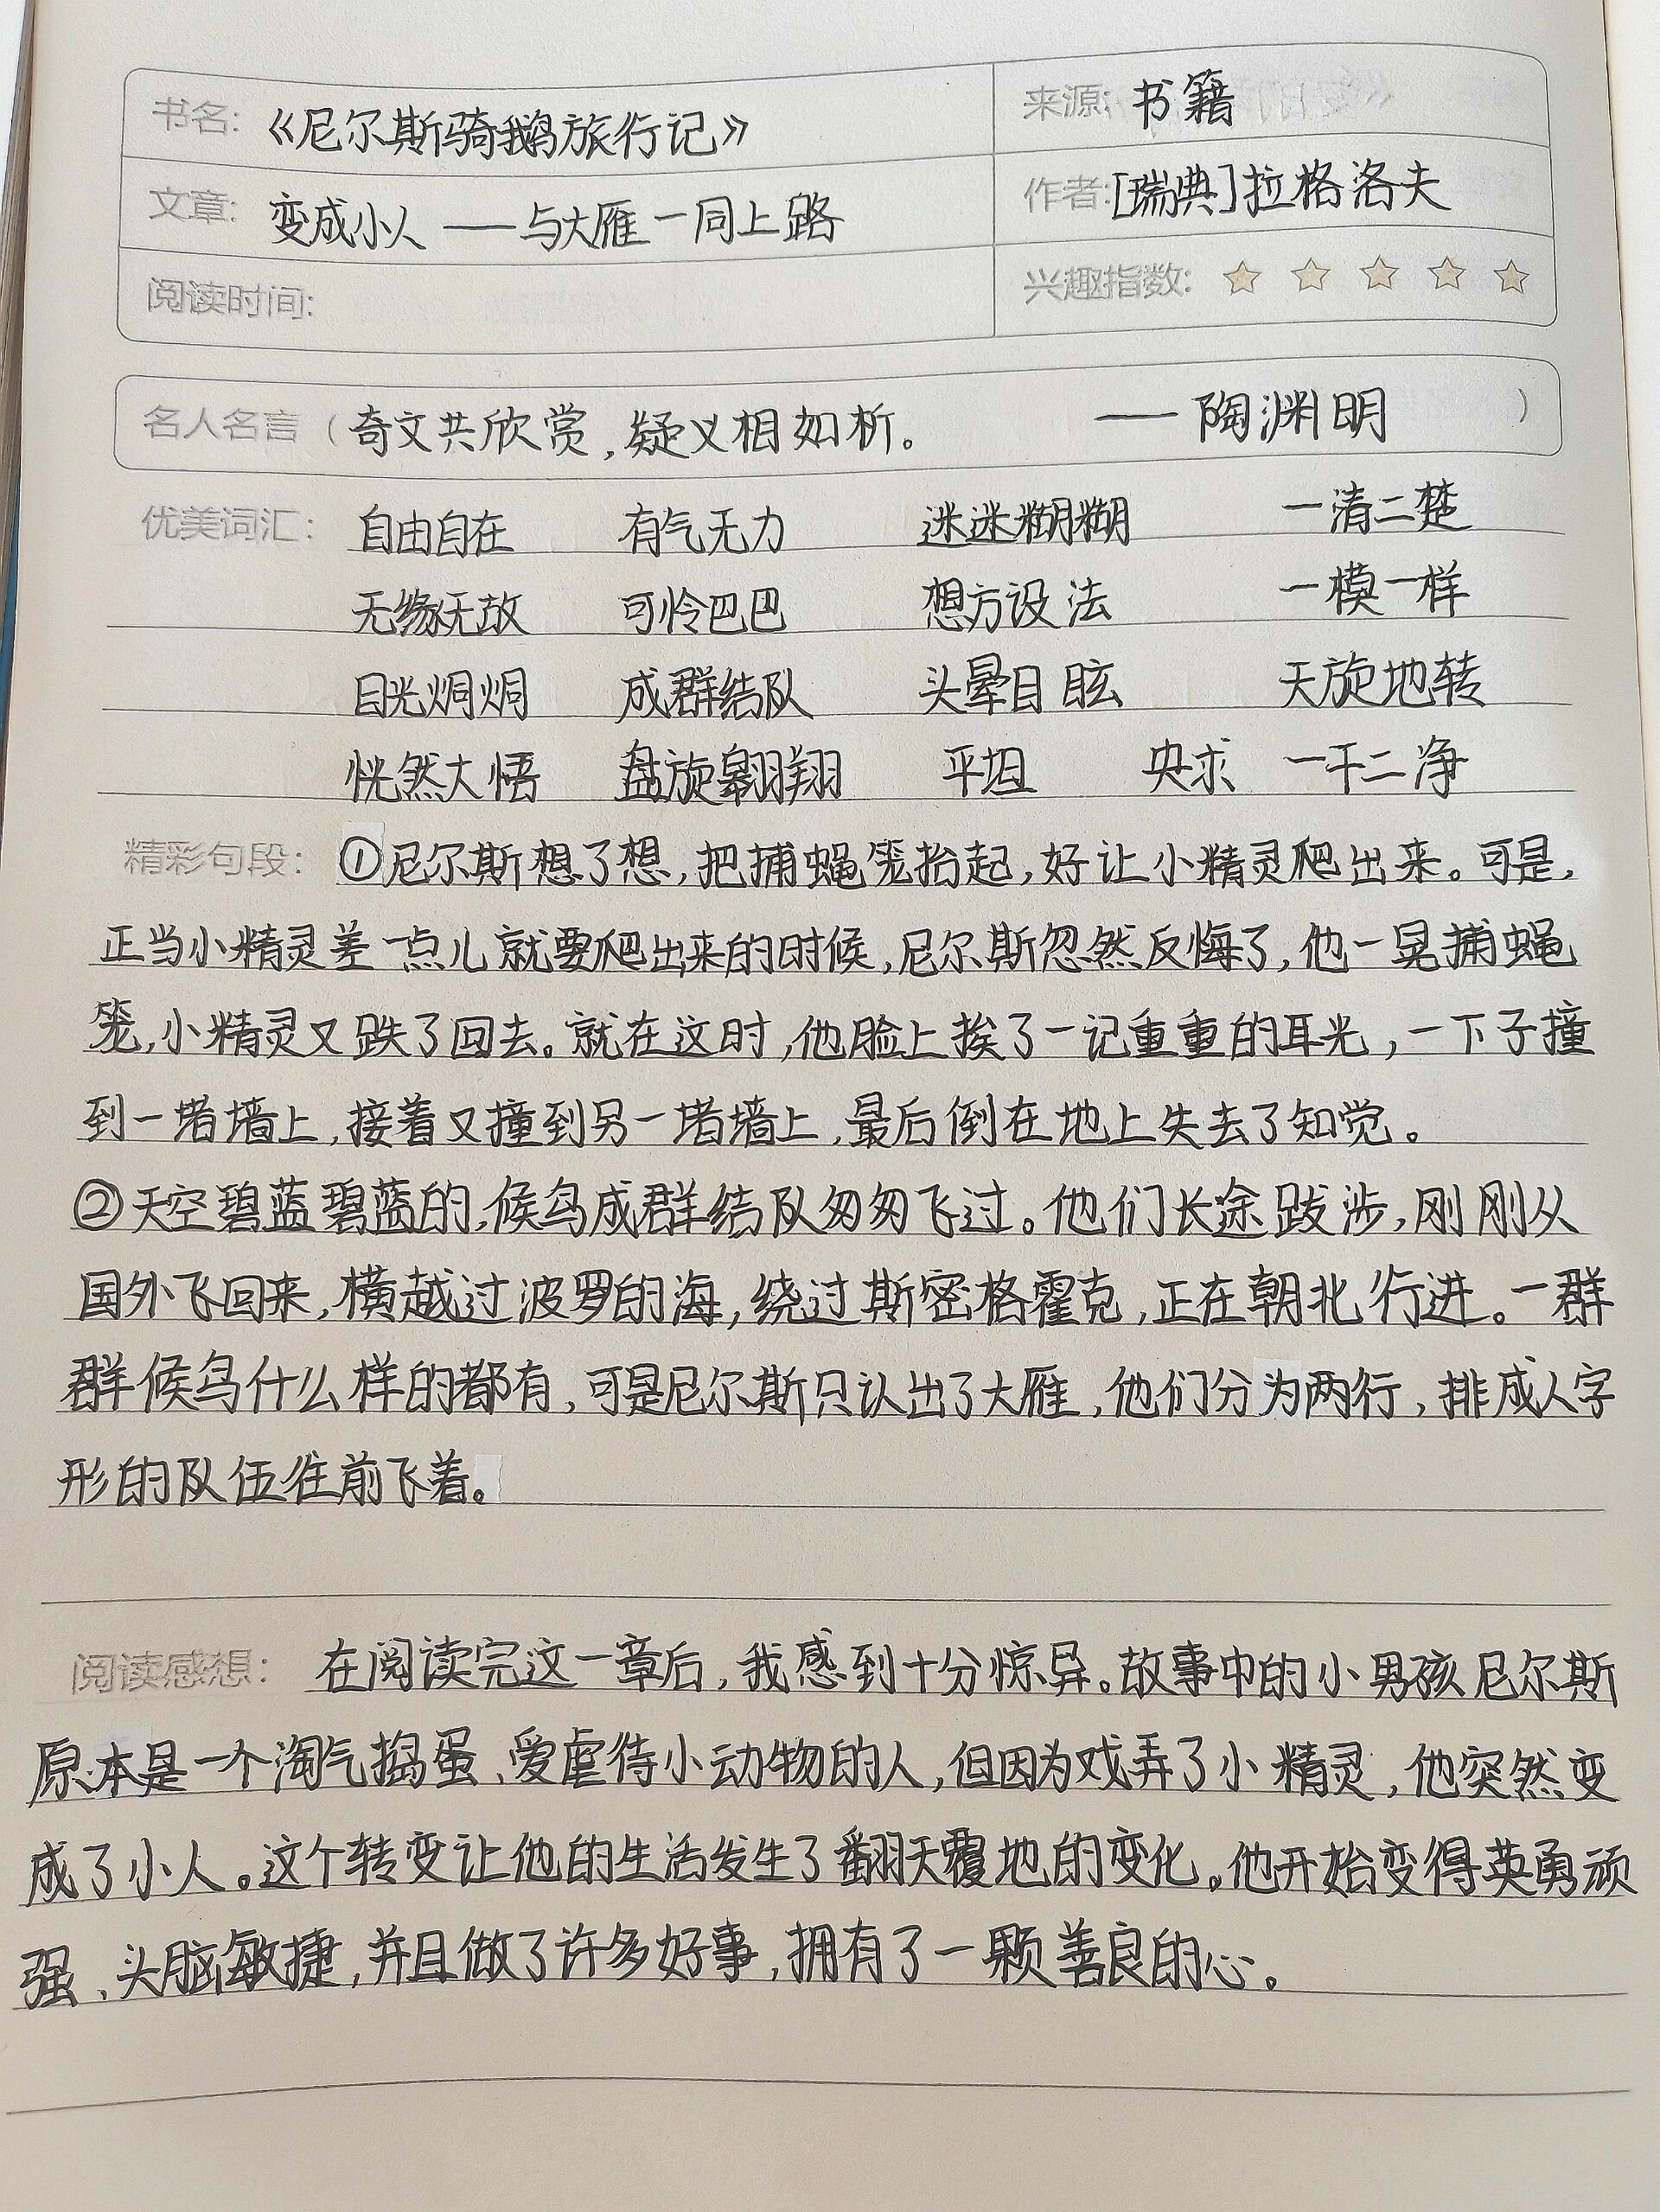 书名: 《尼尔斯骑鹅旅行记》
来源: 书籍
文章: 变成小人——与大雁一同上路
作者: [瑞典]拉格洛夫
阅读时间:
兴趣指数: ☆ ☆ ☆ ☆ ☆
名人名言（奇文共欣赏,疑义相如析。 ——陶渊明 ）
优美词汇: 自由自在 有气无力 迷迷糊糊 一清二楚
无缘无故 可怜巴巴 想方设法 一模一样
目光炯炯 成群结队 头晕目眩 天旋地转
恍然大悟 盘旋翱翔 平坦 央求 一干二净
精彩句段: ①尼尔斯想了想,把捕蝇笼抬起,好让小精灵爬出来。可是,
正当小精灵差一点儿就要爬出来的时候,尼尔斯忽然反悔了,他一晃捕蝇
笼,小精灵又跌了回去。就在这时,他脸上挨了一记重重的耳光,一下子撞
到一堵墙上,接着又撞到另一堵墙上,最后倒在地上失去了知觉。
②天空碧蓝碧蓝的,候鸟成群结队匆匆飞过。他们长途跋涉,刚刚从
国外飞回来,横越过波罗的海,绕过斯密格霍克,正在朝北行进。一群
群候鸟什么样的都有,可是尼尔斯只认出了大雁,他们分为两行,排成人字
形的队伍往前飞着。
阅读感想: 在阅读完这一章后,我感到十分惊异。故事中的小男孩尼尔斯
原本是一个淘气捣蛋、爱虐待小动物的人,但因为戏弄了小精灵,他突然变
成了小人。这个转变让他的生活发生了翻天覆地的变化。他开始变得英勇顽
强、头脑敏捷,并且做了许多好事,拥有了一颗善良的心。